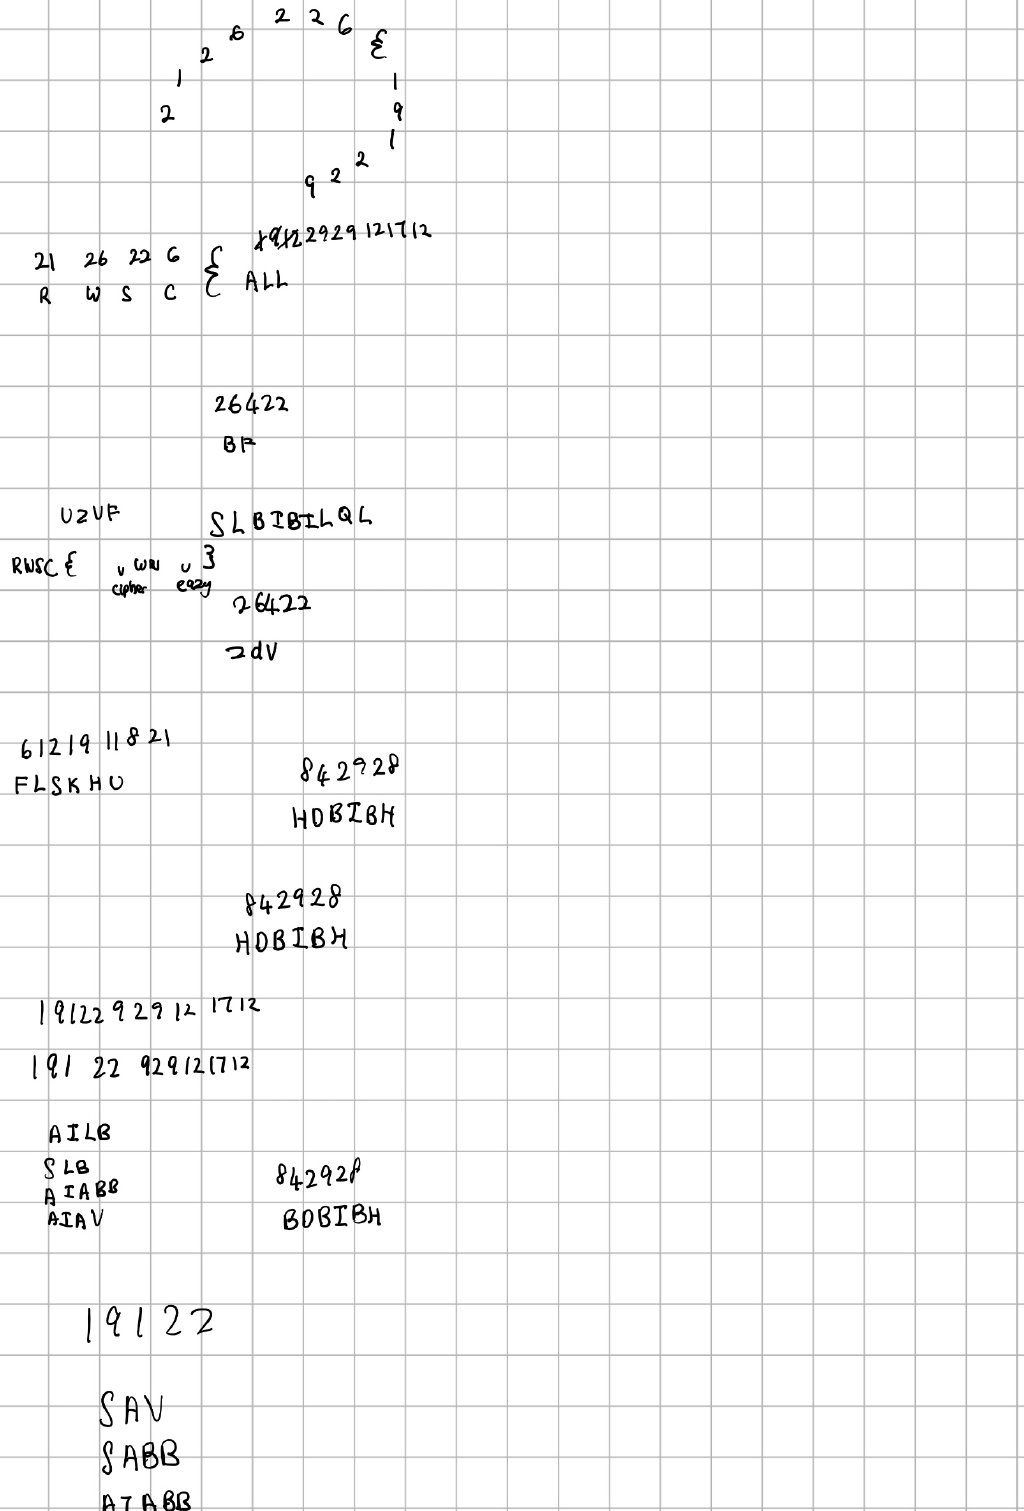 2 1 2 6 2 2 6 {
1 9 1 2 2 9
2929 121712
21 26 22 6 {
R W S C ALL
26422
BF
UZVF SLBIBILQL
RWSC { U WW U }
cipher eazy
26422
2dV
61219 11 8 21
FLSKHU
842928
HDBIBH
842928
HDBIBH
19122 9 29 12 1712
191 22 929121712
AILB
SLB
AIABB
AIAV
842928
BDBIBH
19122
SAV
SABB
AIABB